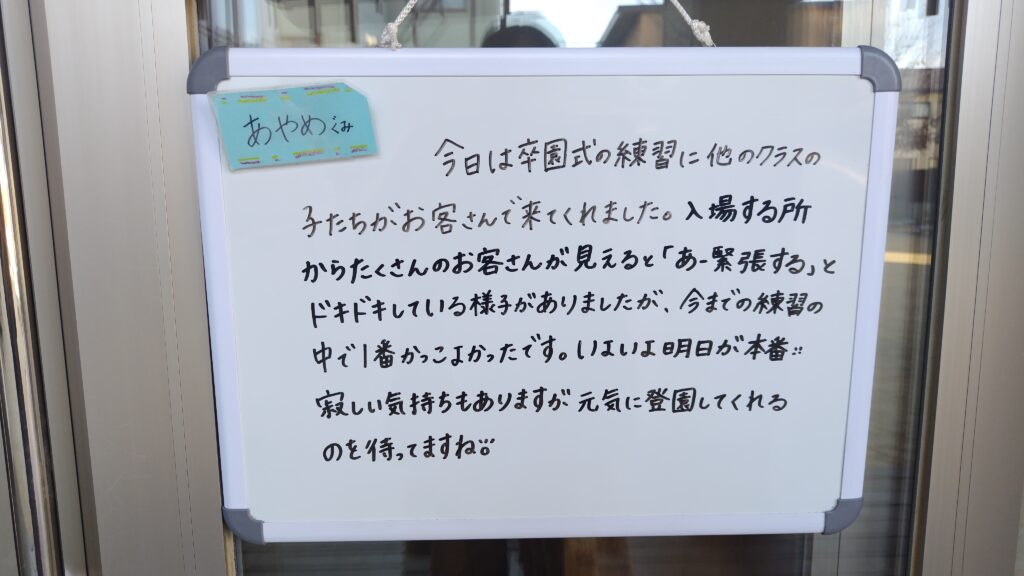 あやめぐみ
今日は卒園式の練習に他のクラスの
子たちがお客さんで来てくれました。入場する所
からたくさんのお客さんが見えると「あー緊張する」と
ドキドキしている様子がありましたが、今までの練習の
中で1番かっこよかったです。いよいよ明日が本番‥
寂しい気持ちもありますが元気に登園してくれる
のを待ってますね。